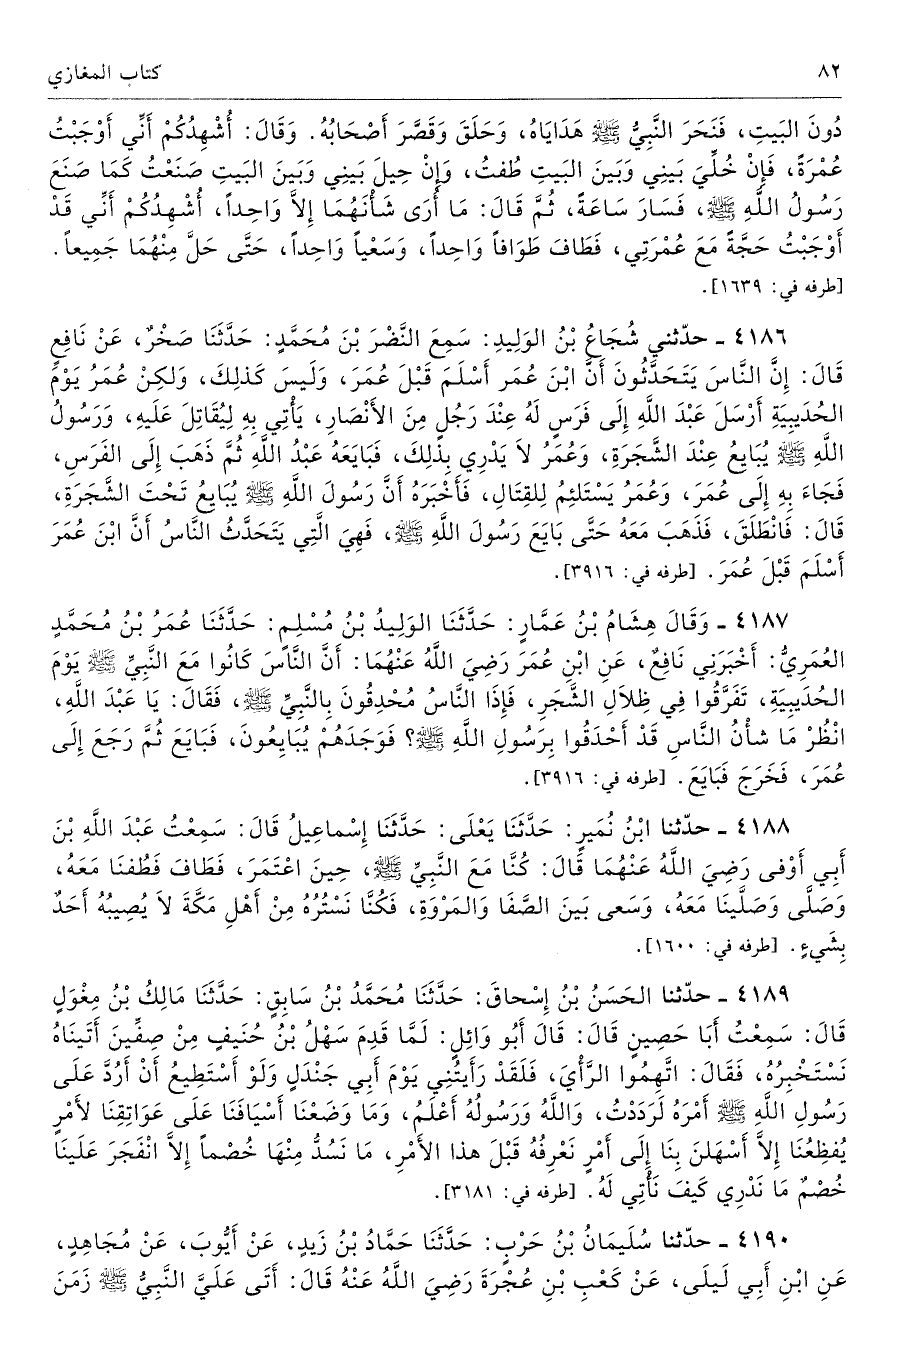 ٨٢ كتاب المغازي
دُونَ البَيتِ، فَنَحَرَ النَّبِيُّ ﷺ هَدَايَاهُ، وَحَلَقَ وَقَصَّرَ أَصْحَابُهُ. وَقَالَ: أُشْهِدُكُمْ أَنِّي أَوْجَبْتُ
عُمْرَةً، فَإِنْ خُلِّيَ بَينِي وَبَينَ البَيتِ طُفتُ، وَإِنْ حِيلَ بَينِي وَبَينَ البَيتِ صَنَعْتُ كَمَا صَنَعَ
رَسُولُ اللَّهِ ﷺ، فَسَارَ سَاعَةً، ثُمَّ قَالَ: مَا أُرَى شَأْنَهُمَا إِلاَّ وَاحِداً، أُشْهِدُكُمْ أَنِّي قَدْ
أَوْجَبْتُ حَجَّةً مَعَ عُمْرَتِي، فَطَافَ طَوَافاً وَاحِداً، وَسَعْياً وَاحِداً، حَتَّى حَلَّ مِنْهُمَا جَمِيعاً.
[طرفه في: ١٦٣٩].
٤١٨٦ ـ حدّثني شُجَاعُ بْنُ الوَلِيدِ: سَمِعَ النَّضْرَ بْنَ مُحَمَّدٍ: حَدَّثَنَا صَخْرٌ، عَنْ نَافِعٍ
قَالَ: إِنَّ النَّاسَ يَتَحَدَّثُونَ أَنَّ ابْنَ عُمَرَ أَسْلَمَ قَبْلَ عُمَرَ، وَلَيسَ كَذلِكَ، وَلكِنْ عُمَرُ يَوْمَ
الحُدَيبِيَةِ أَرْسَلَ عَبْدَ اللَّهِ إِلَى فَرَسٍ لَهُ عِنْدَ رَجُلٍ مِنَ الأَنْصَارِ، يَأْتِي بِهِ لِيُقَاتِلَ عَلَيهِ، وَرَسُولُ
اللَّهِ ﷺ يُبَايِعُ عِنْدَ الشَّجَرَةِ، وَعُمَرُ لاَ يَدْرِي بِذلِكَ، فَبَايَعَهُ عَبْدُ اللَّهِ ثُمَّ ذَهَبَ إِلَى الفَرَسِ،
فَجَاءَ بِهِ إِلَى عُمَرَ، وَعُمَرُ يَسْتَلئِمُ لِلقِتَالِ، فَأَخْبَرَهُ أَنَّ رَسُولَ اللَّهِ ﷺ يُبَايِعُ تَحْتَ الشَّجَرَةِ،
قَالَ: فَانْطَلَقَ، فَذَهَبَ مَعَهُ حَتَّى بَايَعَ رَسُولَ اللَّهِ ﷺ، فَهِيَ الَّتِي يَتَحَدَّثُ النَّاسُ أَنَّ ابْنَ عُمَرَ
أَسْلَمَ قَبْلَ عُمَرَ. [طرفه في: ٣٩١٦].
٤١٨٧ ـ وَقَالَ هِشَامُ بْنُ عَمَّارٍ: حَدَّثَنَا الوَلِيدُ بْنُ مُسْلِمٍ: حَدَّثَنَا عُمَرُ بْنُ مُحَمَّدٍ
العُمَرِيُّ: أَخْبَرَنِي نَافِعٌ، عَنِ ابْنِ عُمَرَ رَضِيَ اللَّهُ عَنْهُمَا: أَنَّ النَّاسَ كَانُوا مَعَ النَّبِيِّ ﷺ يَوْمَ
الحُدَيبِيَةِ، تَفَرَّقُوا فِي ظِلاَلِ الشَّجَرِ، فَإِذَا النَّاسُ مُحْدِقُونَ بِالنَّبِيِّ ﷺ، فَقَالَ: يَا عَبْدَ اللَّهِ،
انْظُرْ مَا شأْنُ النَّاسِ قَدْ أَحْدَقُوا بِرَسُولِ اللَّهِ ﷺ؟ فَوَجَدَهُمْ يُبَايِعُونَ، فَبَايَعَ ثُمَّ رَجَعَ إِلَى
عُمَرَ، فَخَرَجَ فَبَايَعَ. [طرفه في: ٣٩١٦].
٤١٨٨ ـ حدّثنا ابْنُ نُمَيرٍ: حَدَّثَنَا يَعْلَى: حَدَّثَنَا إِسْماعِيلُ قَالَ: سَمِعْتُ عَبْدَ اللَّهِ بْنَ
أَبِي أَوْفى رَضِيَ اللَّهُ عَنْهُمَا قَالَ: كُنَّا مَعَ النَّبِيِّ ﷺ، حِينَ اعْتَمَرَ، فَطَافَ فَطُفنَا مَعَهُ،
وَصَلَّى وَصَلَّينَا مَعَهُ، وَسَعى بَينَ الصَّفَا وَالمَرْوَةِ، فَكُنَّا نَسْتُرُهُ مِنْ أَهْلِ مَكَّةَ لاَ يُصِيبُهُ أَحَدٌ
بِشَيءٍ. [طرفه في: ١٦٠٠].
٤١٨٩ ـ حدّثنا الحَسَنُ بْنُ إِسْحاقَ: حَدَّثَنَا مُحَمَّدُ بْنُ سَابِقٍ: حَدَّثَنَا مَالِكُ بْنُ مِغْوَلٍ
قَالَ: سَمِعْتُ أَبَا حَصِينٍ قَالَ: قَالَ أَبُو وَائِلٍ: لَمَّا قَدِمَ سَهْلُ بْنُ حُنَيفٍ مِنْ صِفِّينَ أَتَينَاهُ
نَسْتَخْبِرُهُ، فَقَالَ: اتَّهِمُوا الرَّأْيَ، فَلَقَدْ رَأَيتُنِي يَوْمَ أَبِي جَنْدَلٍ وَلَوْ أَسْتَطِيعُ أَنْ أَرُدَّ عَلَى
رَسُولِ اللَّهِ ﷺ أَمْرَهُ لَرَدَدْتُ، وَاللَّهُ وَرَسُولُهُ أَعْلَمُ، وَمَا وَضَعْنَا أَسْيَافَنَا عَلَى عَوَاتِقِنَا لأَمْرٍ
يُفظِعُنَا إِلاَّ أَسْهَلنَ بِنَا إِلَى أَمْرٍ نَعْرِفُهُ قَبْلَ هذا الأَمْرِ، مَا نَسُدُّ مِنْهَا خُصْماً إِلاَّ انْفَجَرَ عَلَينَا
خُصْمٌ مَا نَدْرِي كَيفَ نَأْتِي لَهُ. [طرفه في: ٣١٨١].
٤١٩٠ ـ حدّثنا سُلَيمَانُ بْنُ حَرْبٍ: حَدَّثَنَا حَمَّادُ بْنُ زَيدٍ، عَنْ أَيُّوبَ، عَنْ مُجَاهِدٍ،
عَنِ ابْنِ أَبِي لَيلَى، عَنْ كَعْبِ بْنِ عُجْرَةَ رَضِيَ اللَّهُ عَنْهُ قَالَ: أَتَى عَلَيَّ النَّبِيُّ ﷺ زَمَنَ